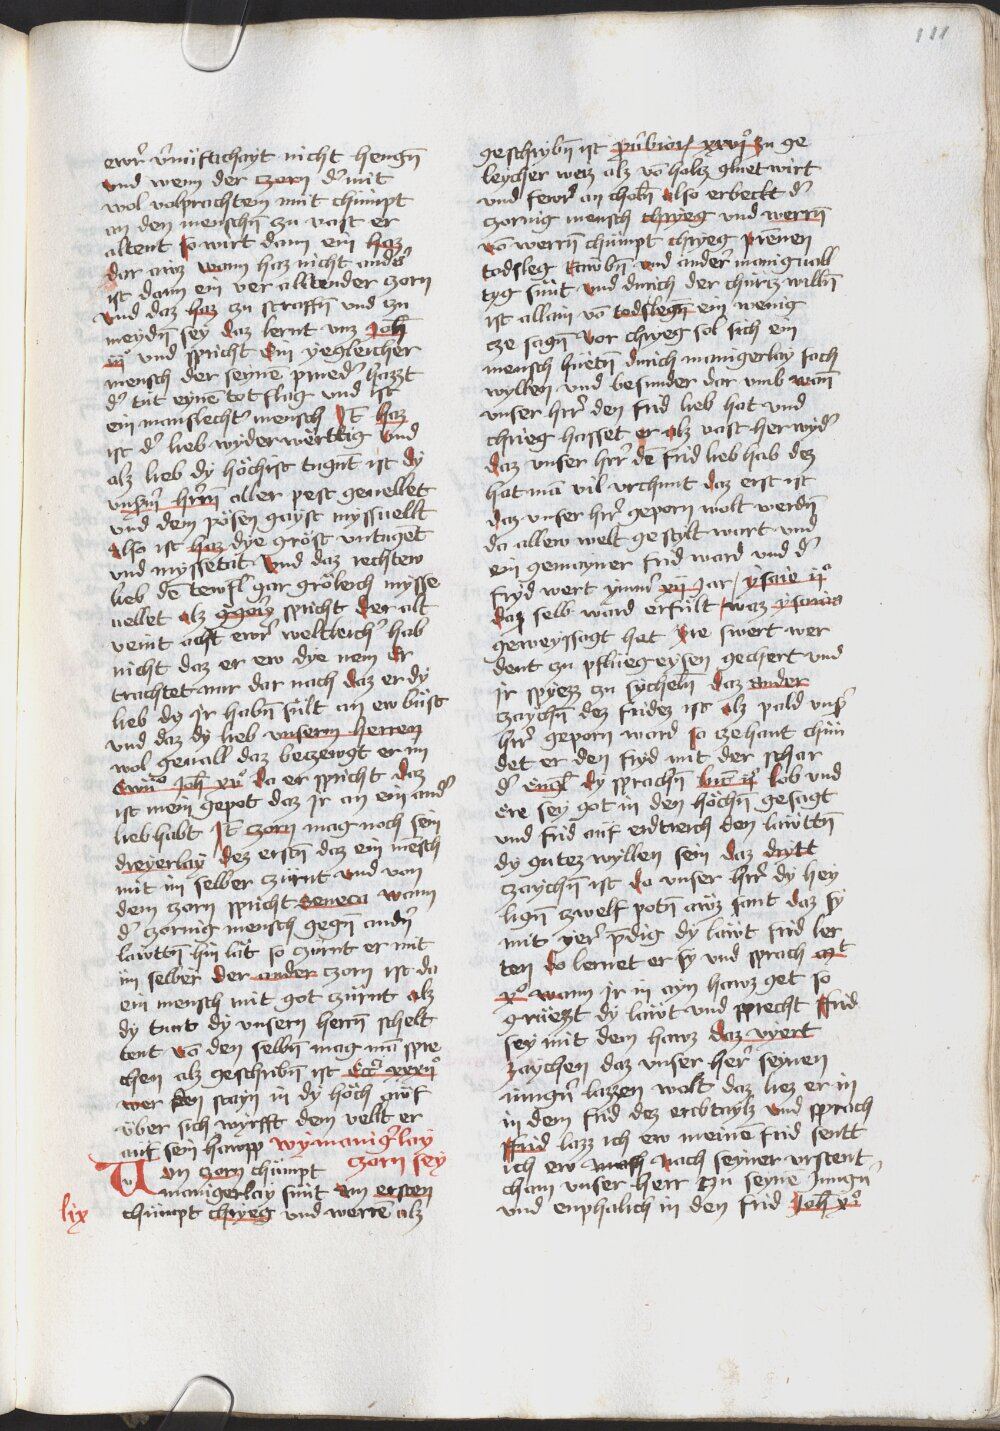 111
ewr̄ v̄nüftichayt nicht hengn̄
vnd wem der zorn d͛ mit
wol volprachtem mit chümpt
an den menschn̄ zu vast er
altent so wirt dann ein haz
dar aüz wann haz nicht and͛s
ist dann ein ver alltender zorn
vnd daz haz zu straffn̄ vnd zu
meydn̄ sey daz lernt vnz Joh̄
iij° vnd spricht Ein yegleicher
mensch der seyne prued͛ hazzt
d͛ tüt eyne totslag vnd ist
ein manslecht͛ mensch It̄ haz
ist d͛ lieb wyderwërttig vnd
alz lieb dy höchist tugnt ist dy
vnsm̄ hr̄rn aller pest geuellet
vnd dem pösen gayst myssuellt
Also ist haz dye gröst vntugēt
vnd myssetat vnd daz rechtew
lieb dē tewfl gar grölich mysse
uellet alz gregorẏ spricht der alt
veint acht ewr̄ weltleich͛ hab
nicht daz er ew dye nem Er
trachtet nur dar nach daz er dy
lieb dy jr habn̄ sült an ew büst
vnd daz dy lieb vnserm herren
wol geuall daz bezewgt er im
Ewn̄° Joh̄ xv° da er spricht daz
ist mein gepot daz jr an ein and͛
lieb habt It̄ zorn mag noch sein
dreyerlay Dez erstn̄ daz ein mēsch
mit im selber zürnt vnd von
dem zorn spricht Seneca wann
d͛ zornig mensch gegn̄ andn̄
läwttn̄ hin lät so zürnt er mit
im selber Der ander zorn ist da
ein mensch mit got zürnt alz
dy tunt dy vnsern herrn̄ schelt
tent vō den selbn̄ mag mā spre
chen alz geschribn̄ ist Ecc̄ xxvij°
wer den stayn in dy höch wirf
über sich wyrfft dem vellt er
auf sein hawpp wy manig͛lay
zorn sey
Von zorn chümpt
manigerlay sünt am ersten
lix
chümpt chryeg vnd werrē alz
geschrybn̄ ist pu͛bior xxvi° zu ge
leycher weiz alz vō holtz gluet wirt
vnd fewr̄ an choln̄ Also erbeckt d͛
zornig mensch chryeg vnd werrn̄
vō werrn̄ chümpt chryeg prennen
todsleg rawbn̄ vnd ander maniguall
tyg sünt vnd durich der chürtz willn̄
ist allain vō todslegn̄ ein wenig
ze sagn̄ Vor chryeg sol sich ein
mensch hüetn̄ durich manigerlay sach
wyllen vnd besunder dar vmb wan̄
vnser hr̄r den frid lieb hat vnd
chrieg hasset er alz vast her wyd͛
daz vnser hr̄r dē frid lieb hab dez
hat mā vil vrchunt daz erst ist
daz vnser hr̄r geporn wolt werdn̄
da allew welt gestylt wart vnd
ein gemayner frid ward vnd d͛
fryd wert ynn͛ xij Jar / ysaie ij°
daz selb ward erfült waz ysaias
geweyssagt hat Jre swert wer
dent zu pflüegeysen gechert vnd
jr spyezz zu sycheln̄ daz ander
zaychn̄ dez fridez ist alz pald vns͛
hr̄r geporn ward so zehant chün
det er den fryd mit der schar
d͛ engl dy sprachn̄ luc̄ ij° lob vnd
ere sey got in den höchn̄ gesagt
vnd frid auf erdtreich den läwttn̄
dy gutez wyllen sein daz drytt
zaychn̄ ist da vnser hr̄r dy hey
lign̄ zwelf potn̄ aüz sant daz sy
mit yer͛ p̄dig dy läwt frid ler
ten do lernet er sy vnd sprach mt
x° wann jr in ayn hawz get so
grüezt dy läwt vnd sprecht Frid
sey mit dem hawz daz vyert
zaychen daz vnser her͛ seynen
iungn̄ lazzen wolt daz liez er in
in dem frid dez erbtaylz vnd sprach
Frid lazz ich ew meinē frid sentt
ich ew Nach seyner vrstent
cham vnser herr zu seynē Jungn̄
vnd enphalich in den frid Joh̄ x°